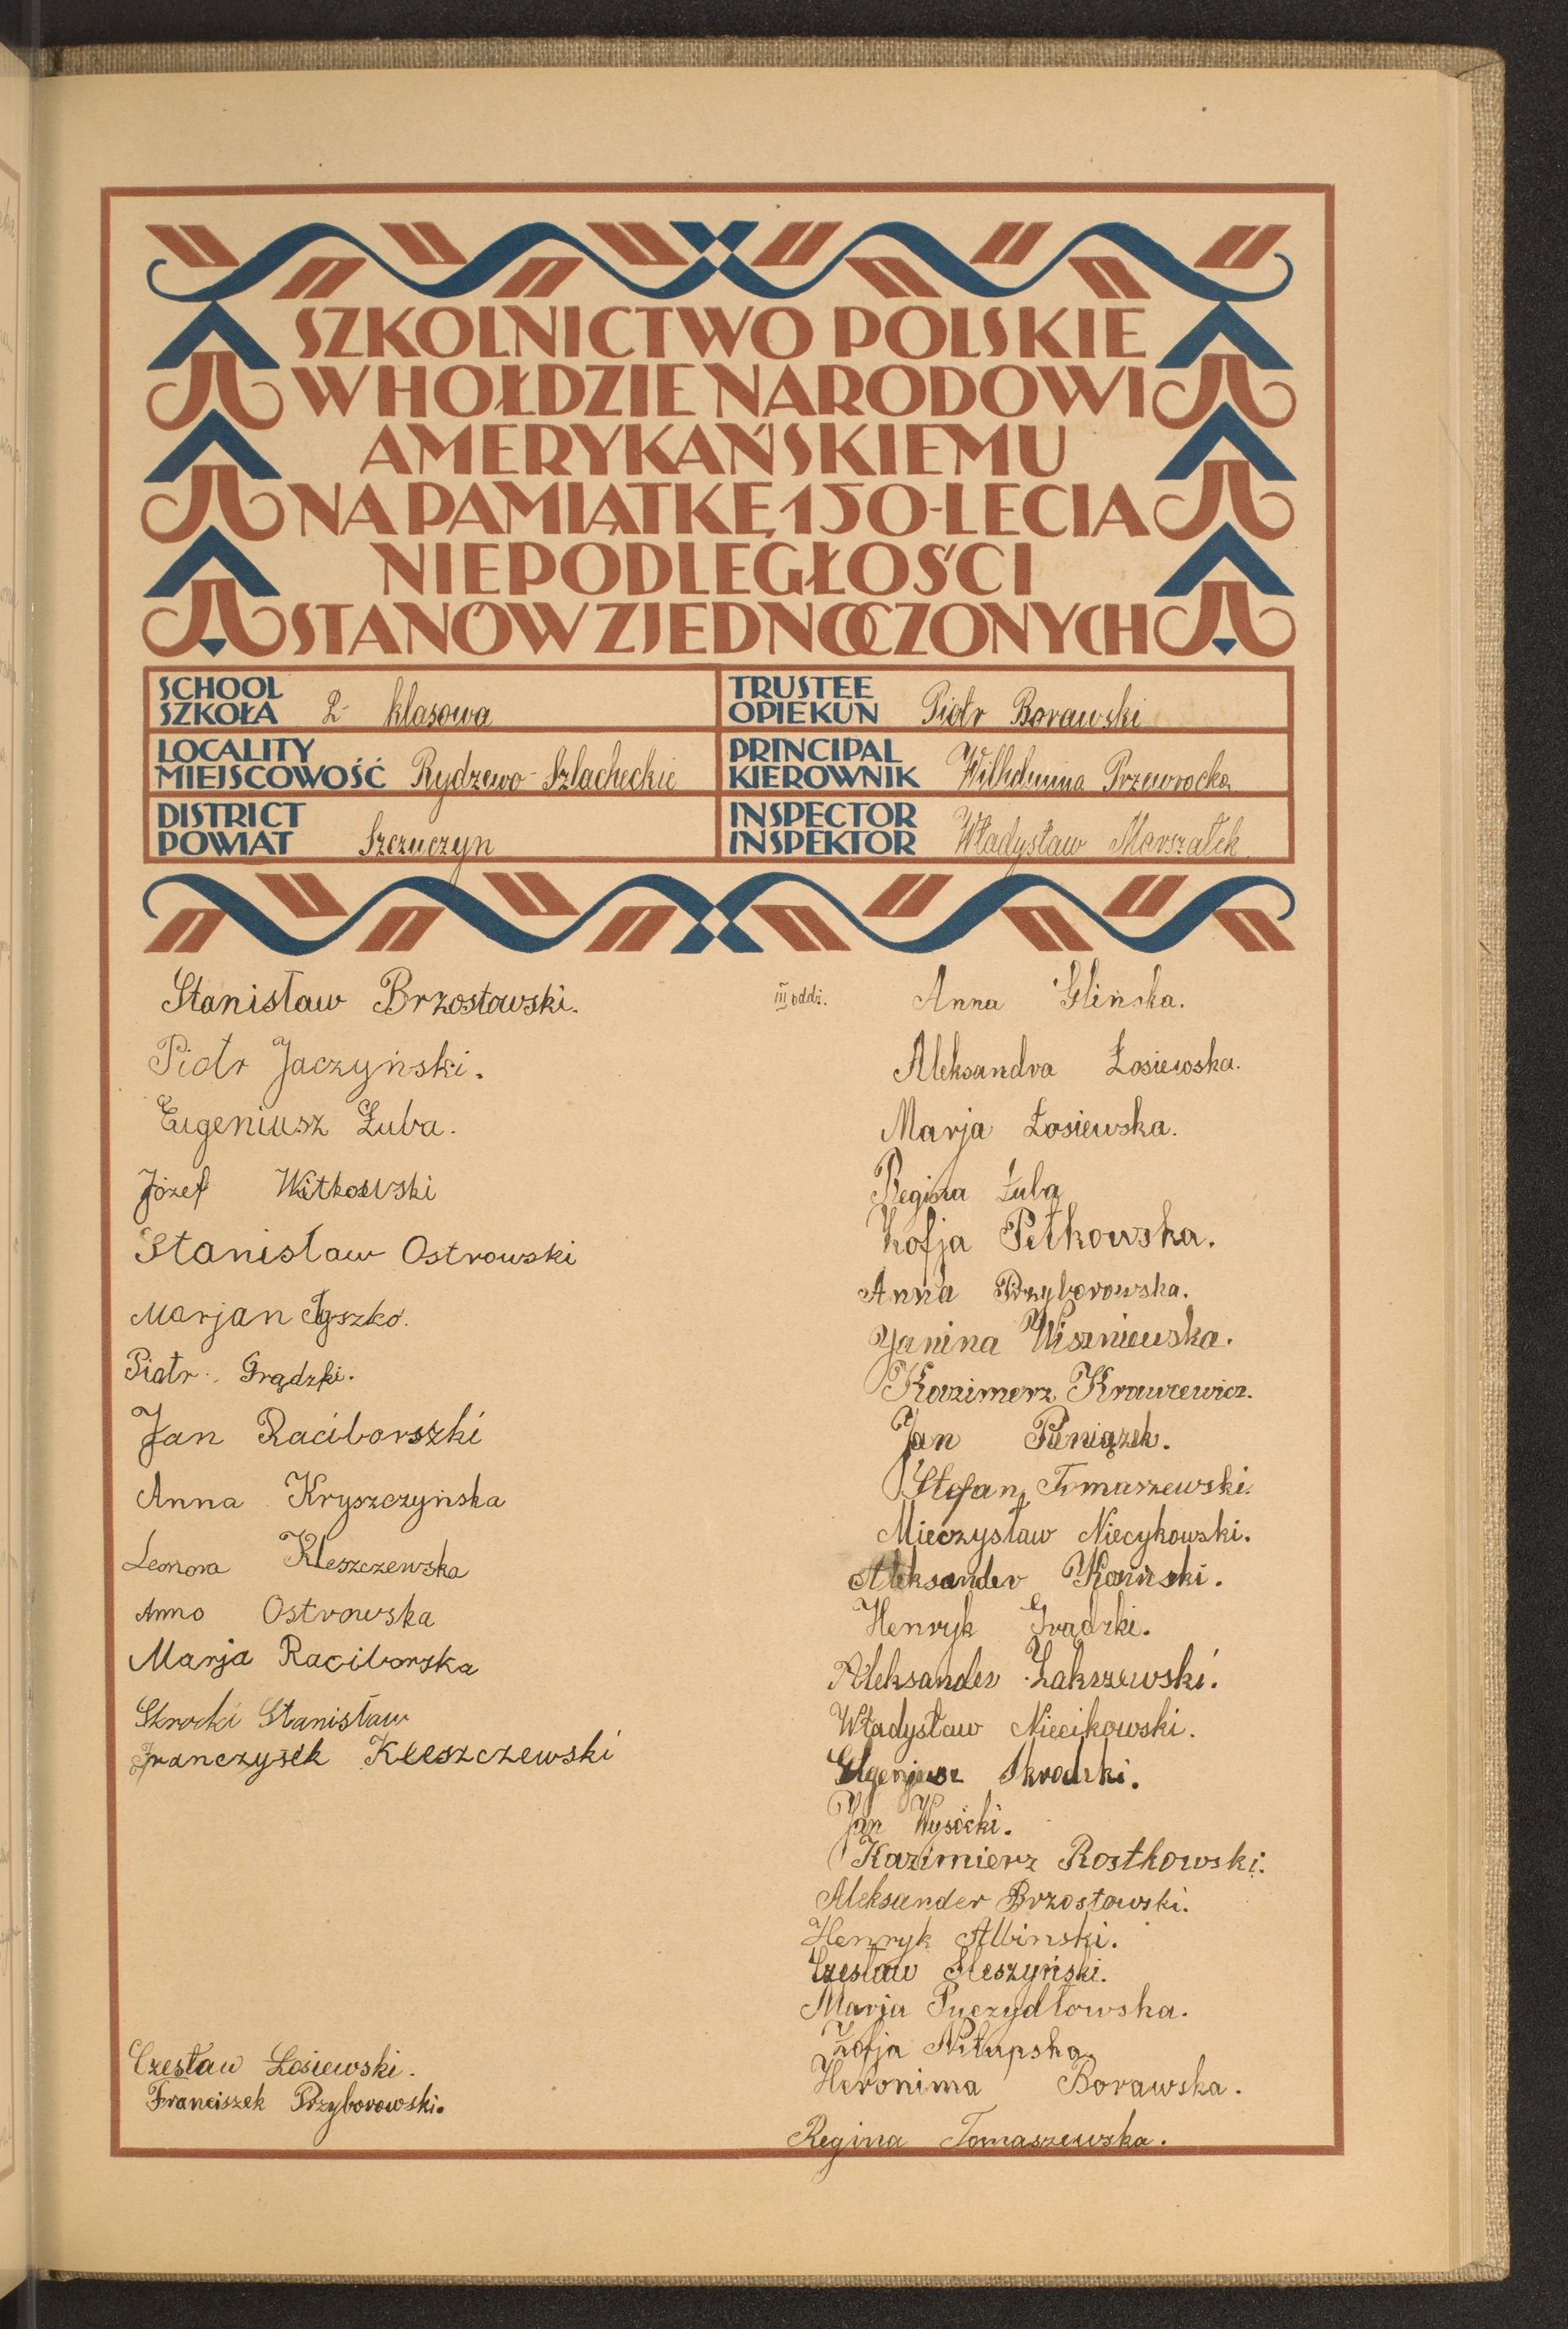 SZKOLNICTWO POLSKIE
W HOŁDZIE NARODOWI
AMERYKAŃSKIEMU
NA PAMIĄTKĘ 150-LECIA
NIEPODLEGŁOŚCI
STANÓW ZJEDNOCZONYCH
SCHOOL
SZKOŁA 2- klasowa
TRUSTEE
OPIEKUN Piotr Borawski
LOCALITY
MIEJSCOWOŚĆ Rydzewo-Szlacheckie
PRINCIPAL
KIEROWNIK Wilhelmina Przewrocka
DISTRICT
POWIAT Szczuczyn
INSPECTOR
INSPEKTOR Władysław Marszałek
Stanisław Brzostowski.
Piotr Jaczyński.
Eugeniusz Łuba.
Józef Witkowski
Stanisław Ostrowski
Marjan
Piotr Grądzki.
Jan Raciborszki
Anna Kryszczyńska
Leonora Kleszczewska
Anna Ostrowska
Marja Raciborska
Skrocki Stanisław
Franczysek Kleeszczewski
Czesław Łosiewski.
Franciszek Przyborowski.
III oddz.
Anna Glińska.
Aleksandra Łosiewska.
Marja Łosiewska.
Regina Łuba
Zofja Petkowska.
Anna Przyborowska.
Janina Wiszniewska.
Kazimerz Krawcewicz.
Jan Pieniązek.
Stefan Tomaszewski.
Mieczysław Niecykowski.
Aleksander Koniński.
Henryk Grądzki.
Aleksander Zakszewski.
Władysław Niecikowski.
Skrodzki.
Jan Wysocki.
Kazimierz Rostkowski.
Aleksander Brzostowski.
Henryk Albinski.
Czesław Pleszyński.
Marja Puczydłowska.
Zofja
Heronima Borawska.
Regina Tomaszewska.